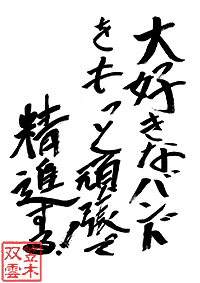 大好きなバンド
をもっと頑張て
精進する!
笠木
双雲